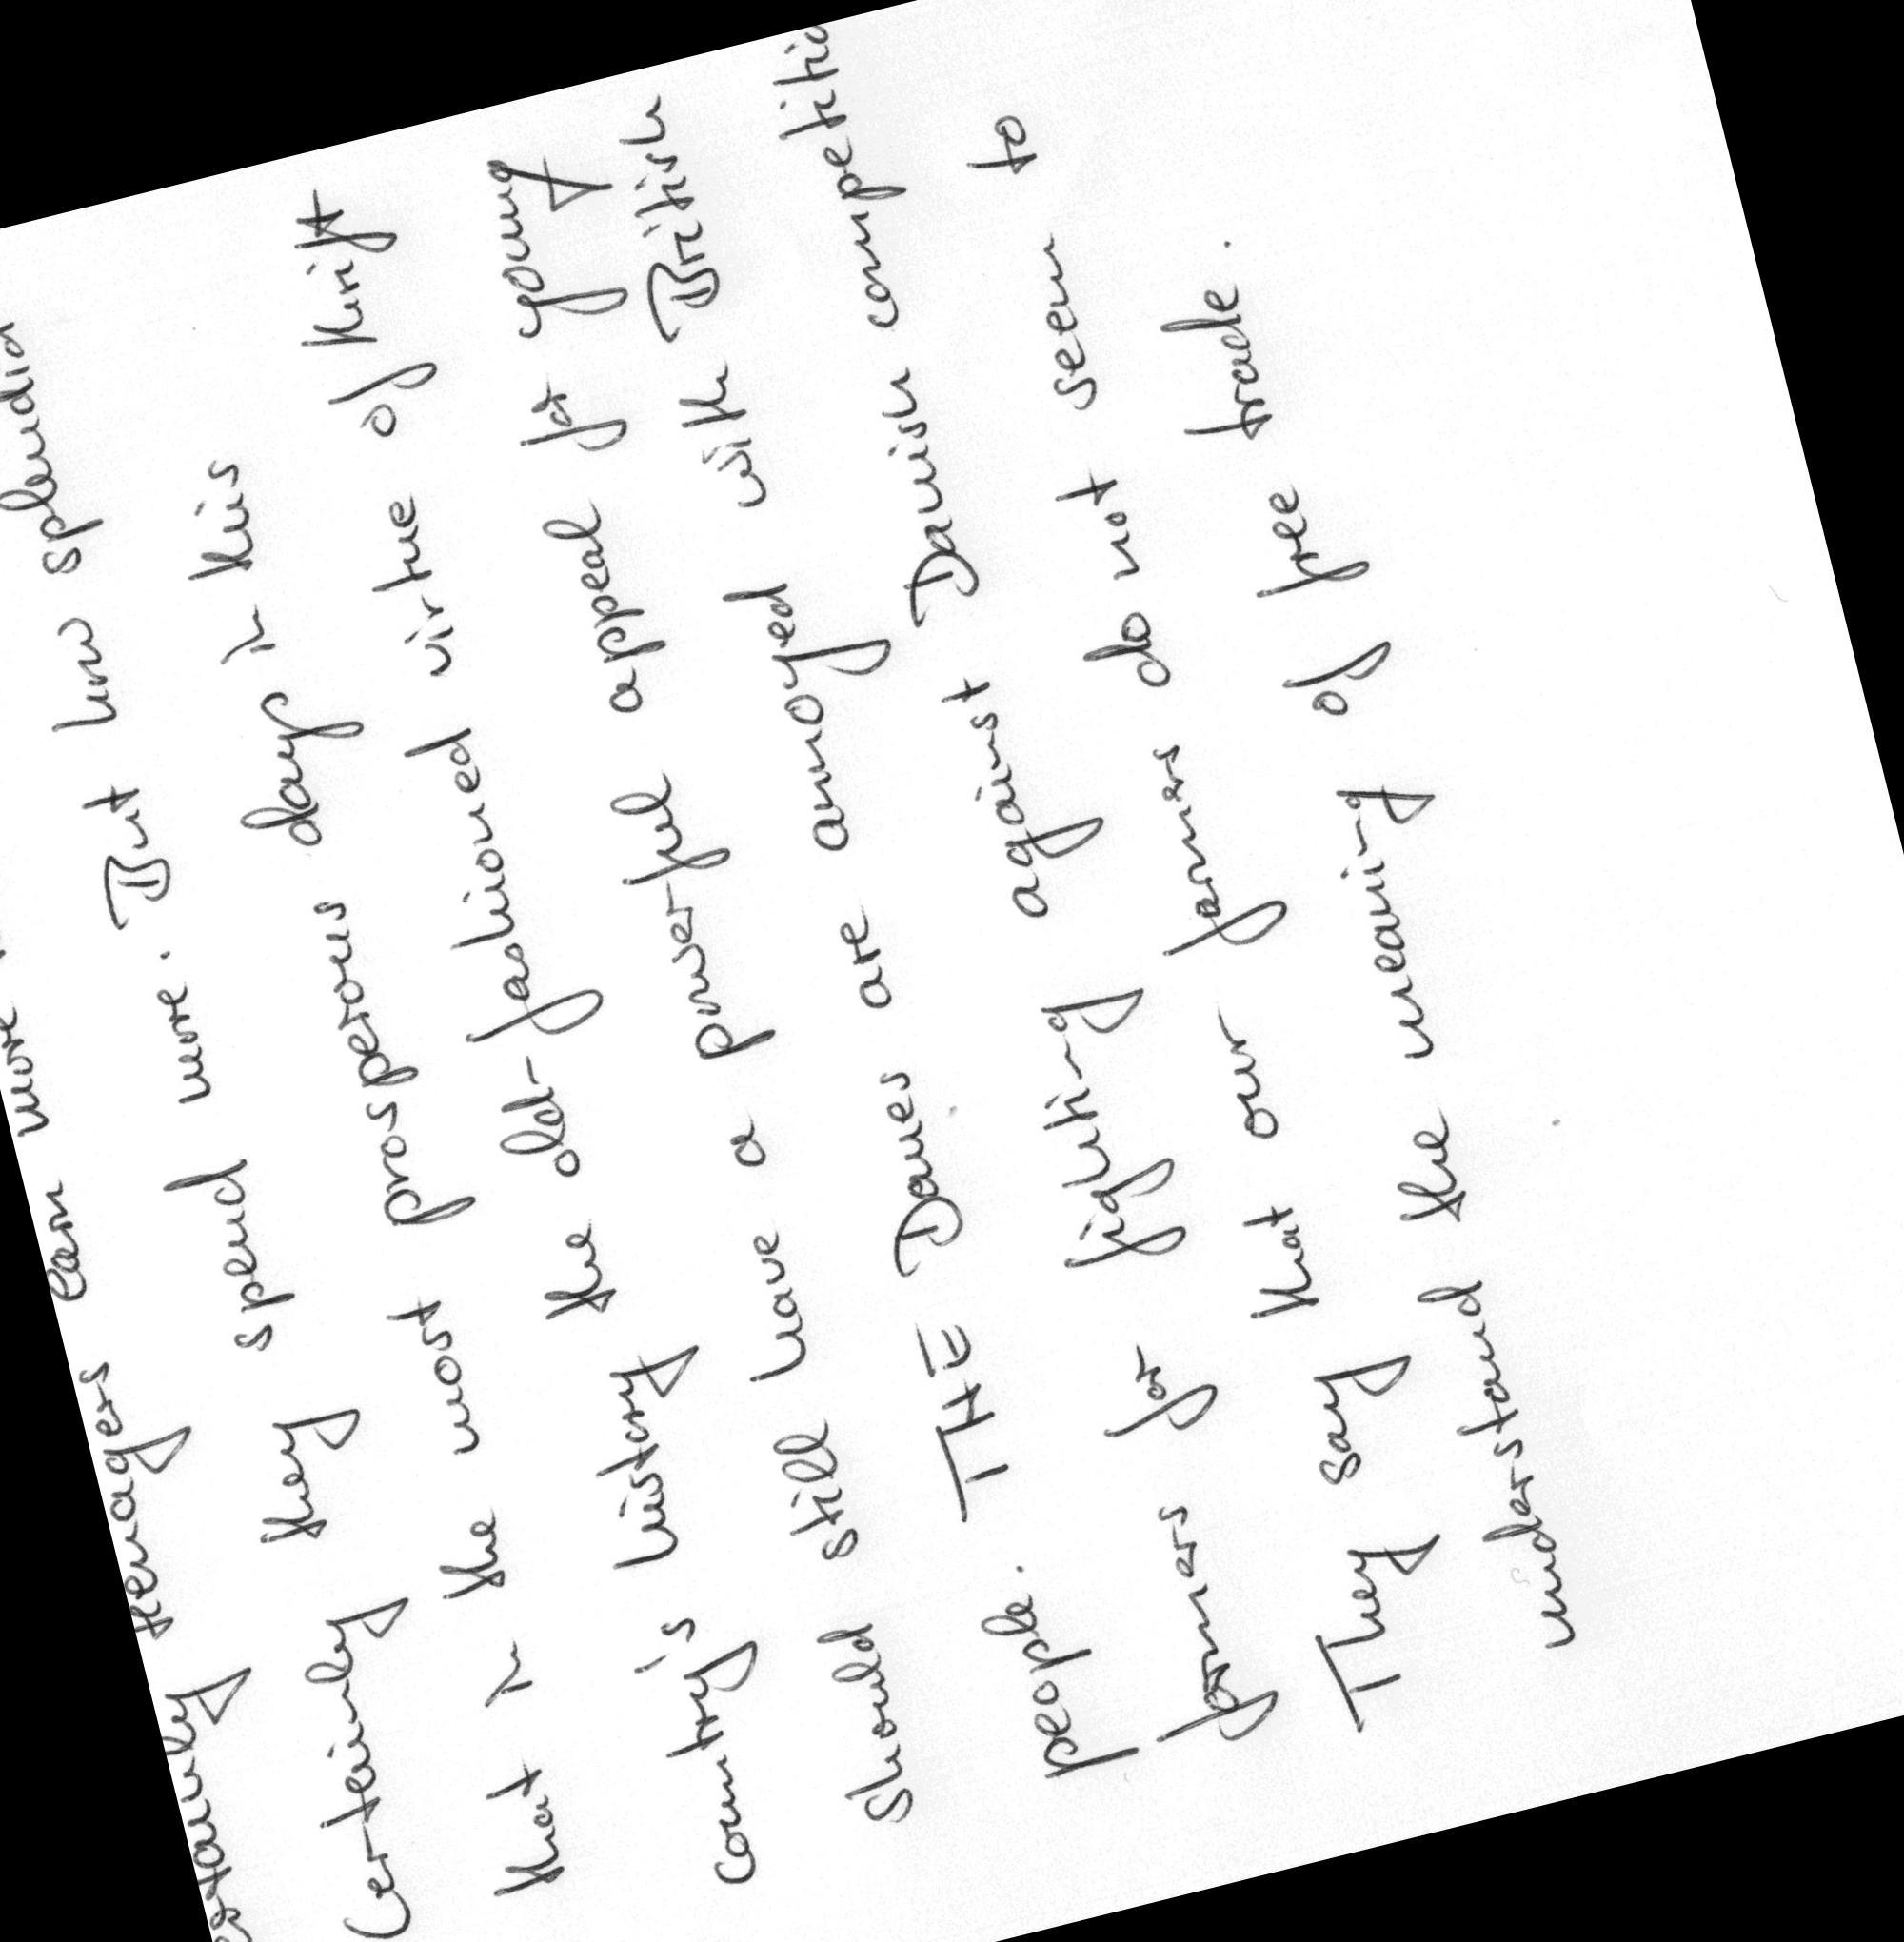 teenagers earn more
Certainly they spend more. But how splendid
that in the most prosperous days in this
country's history the old-fashioned virtue of thrift
should still have a powerful appeal for young
people. THE Danes are annoyed with British
farmers for fighting against Danish competitio
They say that our farmers do not seem to
understand the meaning of free trade.